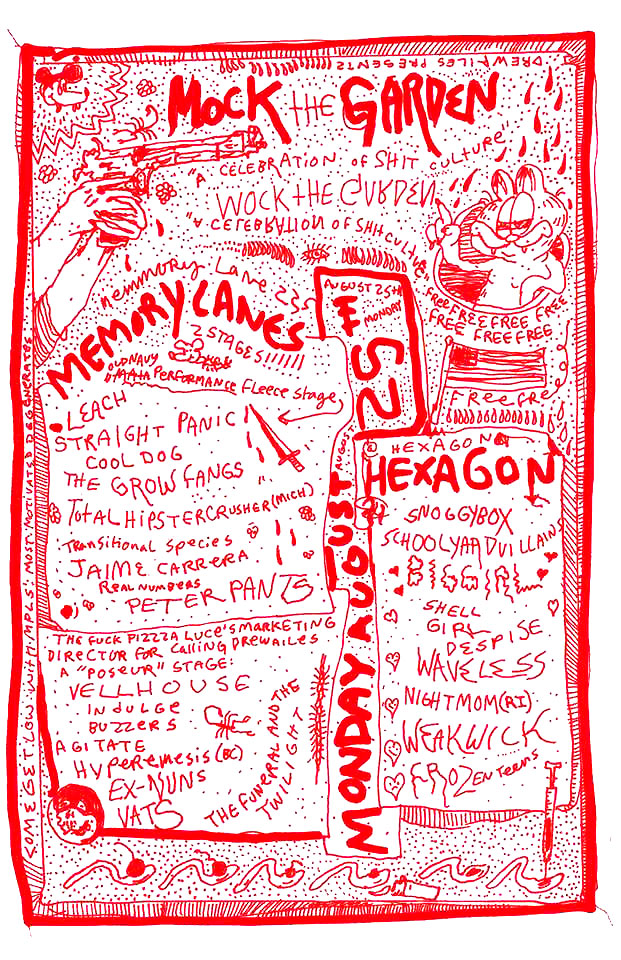 DREWAILES PRESENTZ
MOCK THE GARDEN
"A CELEBRATION: OF SHIT CULTURE"
WOCK THE GURDEN
"A CELEBRATION OF SHIT CULTURE"
MEMMMORY LANE 225
MEMORY LANES
2 STAGES!!!!!!
OLD NAVY
MAIN PERFORMANCE FLEECE STAGE
LEACH
STRAIGHT PANIC
COOL DOG
THE GROW FANGS
TOTAL HIPSTER CRUSHER (MICH)
TRANSITIONAL SPECIES
JAIME CARRERA
REAL NUMBERS
PETER PANTS
THE FUCK PIZZZA LUCE'S MARKETING
DIRECTOR FOR CALLING DREWAILES
A "POSEUR" STAGE:
VELLHOUSE
INDULGE
BUZZERS
AGITATE
HYPEREMESIS (BC)
EX-NUNS
VATS
THE FUNERAL AND THE
TWILIGHT
AUGUST 25TH
MONDAY
25
AUGUST
MONDAY AUGUST
FREE FREE FREE FREE
FREE FREE FREE
FREE FREE
HEXAGON
HEXAGON
SNOGGYBOX
SCHOOLYARD VILLAINS
SHELL
GIRL
DESPISE
WAVELESS
NIGHTMOM (RI)
WEAKWICK
FROZEN TEENS
COME GET LOW WITH MPLS' MOST MOTIVATED DEGENERATE